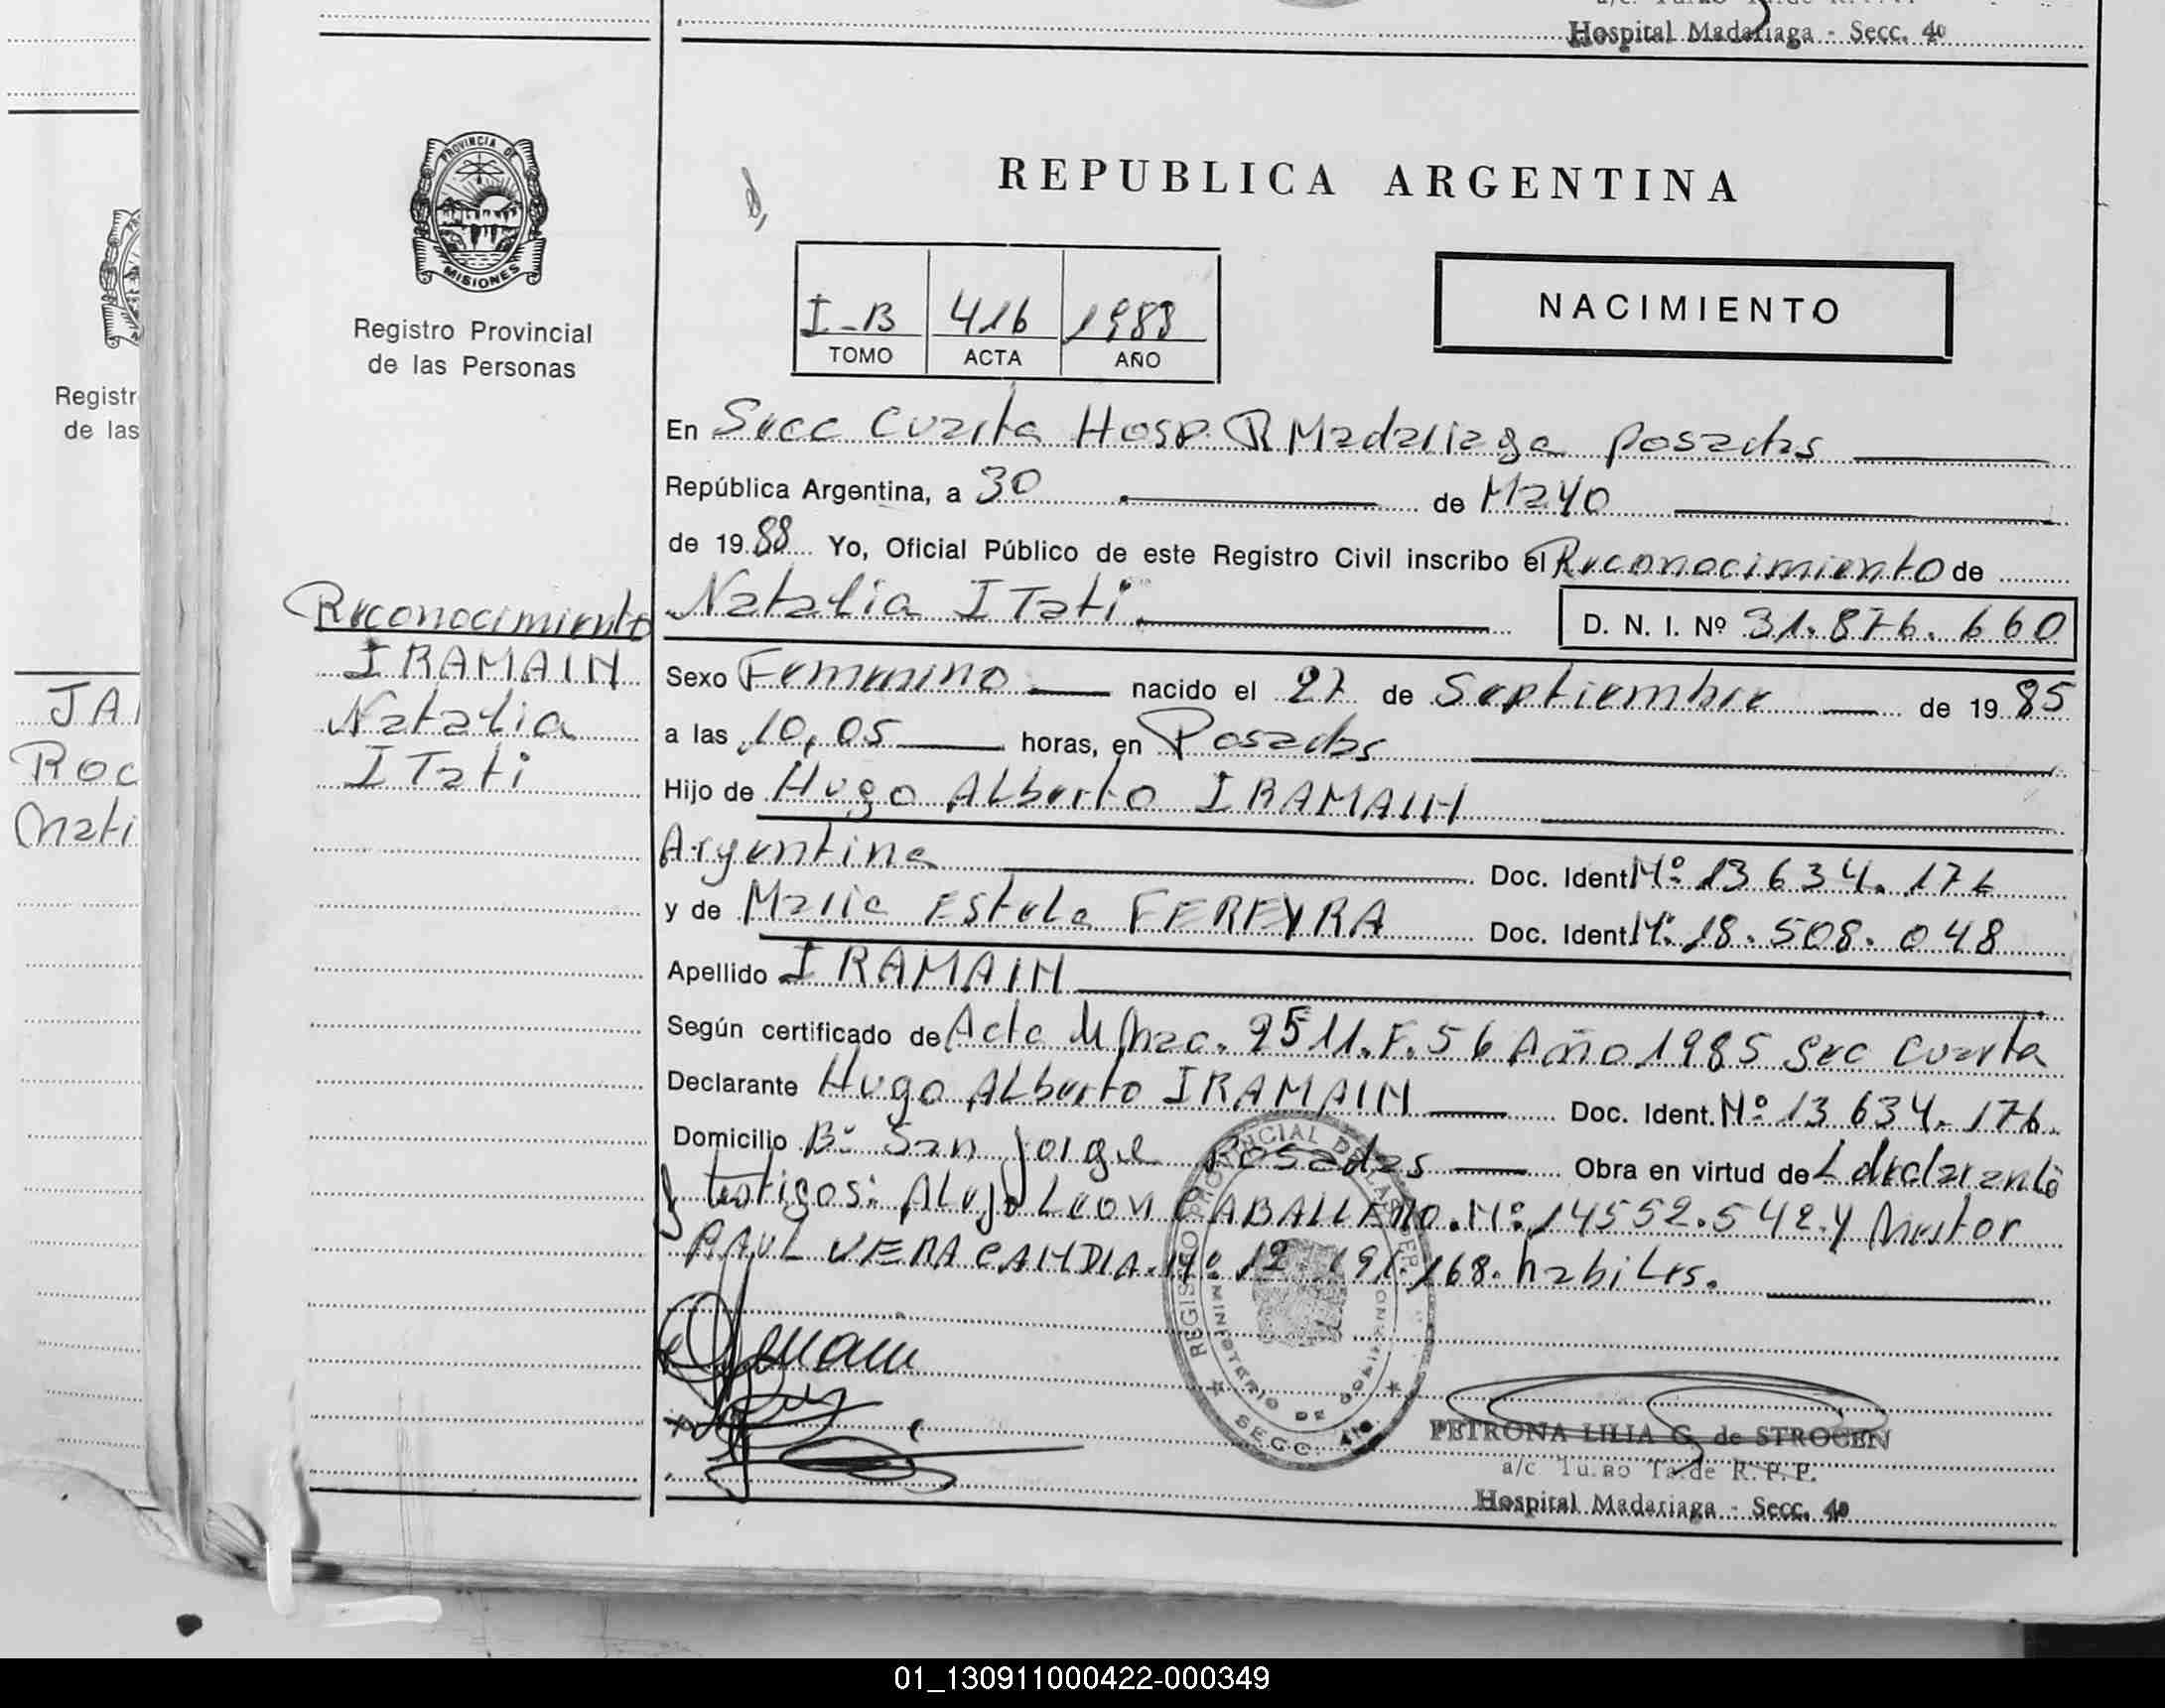 Hospital Madariaga - Secc. 4º
PROVINCIA DE
MISIONES
Registro Provincial
de las Personas
REPUBLICA ARGENTINA
I-B 416 1988
TOMO ACTA AÑO
NACIMIENTO
En Secc Cuarta Hosp. R Madariaga Posadas
República Argentina, a 30 de Mayo
de 1988 Yo, Oficial Público de este Registro Civil inscribo el Reconocimiento de
Natalia ITati
D. N. I. Nº 31.876.660
Reconocimiento
IRAMAIN
Natalia
ITati
Sexo Femenino nacido el 27 de Septiembre de 1985
a las 10,05 horas, en Posadas
Hijo de Hugo Alberto IRAMAIN
Argentina Doc. Ident. Nº 13 634.176
y de Maria Estela FEREYRA Doc. Ident. Nº 18.508.048
Apellido IRAMAIN
Según certificado de Acta Nac. 2511.F.56 Año 1985 Sec Cuarta
Declarante Hugo Alberto IRAMAIN Doc. Ident. Nº 13 634.176.
Domicilio Bº San Jorge Posadas Obra en virtud de L declarante
y testigos: Alejo Leon CABALLERO. Nº 14552.542. y Nestor
RAUL VERA CANDIA. Nº 12.191.168. habiles.
REGISTRO PROVINCIAL DE LAS PER
MINISTERIO DE GOBIERNO
SECC. 4ta.
PETRONA LILIA G. de STROCEN
a/c Turno Tarde R. P. P.
Hospital Madariaga - Secc. 4º
Registr
de las
JA
Roc
Mati
01_130911000422-000349